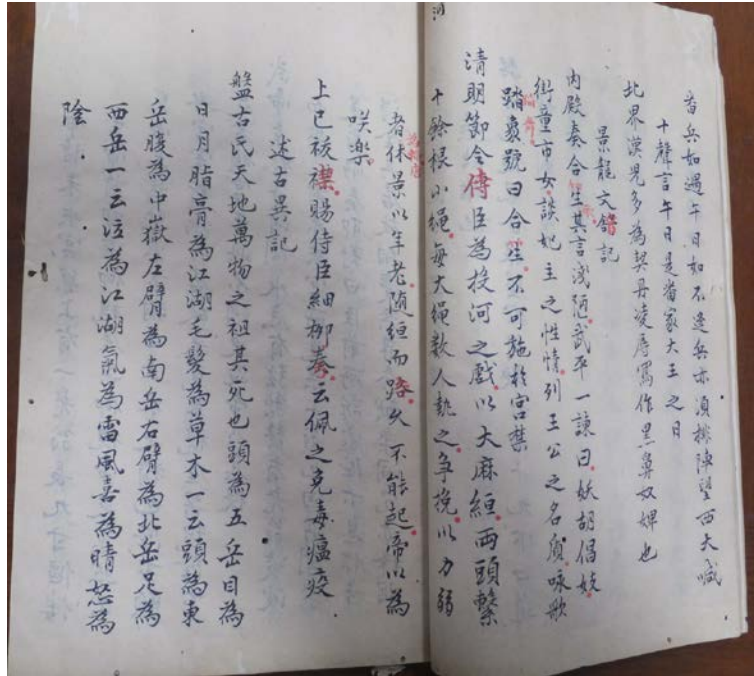 番兵如遇午日如不逢兵亦須排陣望西大喊
十聲言午日是番家大王之日
北界漢児多為契丹凌辱罵作黑鼻奴婢也
景龍文館記
內殿奏合生其言淺陋武平一諫曰妖胡倡妓
街童市女談妃主之性情列王公之名質咏歌
蹈舞號曰合生不可施於宮禁
清明節令侍臣為投河之戲以大麻絙兩頭繫
十餘根小繩每大繩數人執之爭挽以力弱
者休景以年老随絙而踣久不能起帝以為
咲樂
上巳祓禊賜侍臣細柳奏云佩之免毒瘟疫
述古異記
盤古氏天地萬物之祖其死也頭為五岳目為
日月脂膏為江湖毛髮為草木一云頭為東
岳腹為中嶽左臂為南岳右臂為北岳足為
西岳一云泣為江湖氣為雷風喜為晴怒為
陰